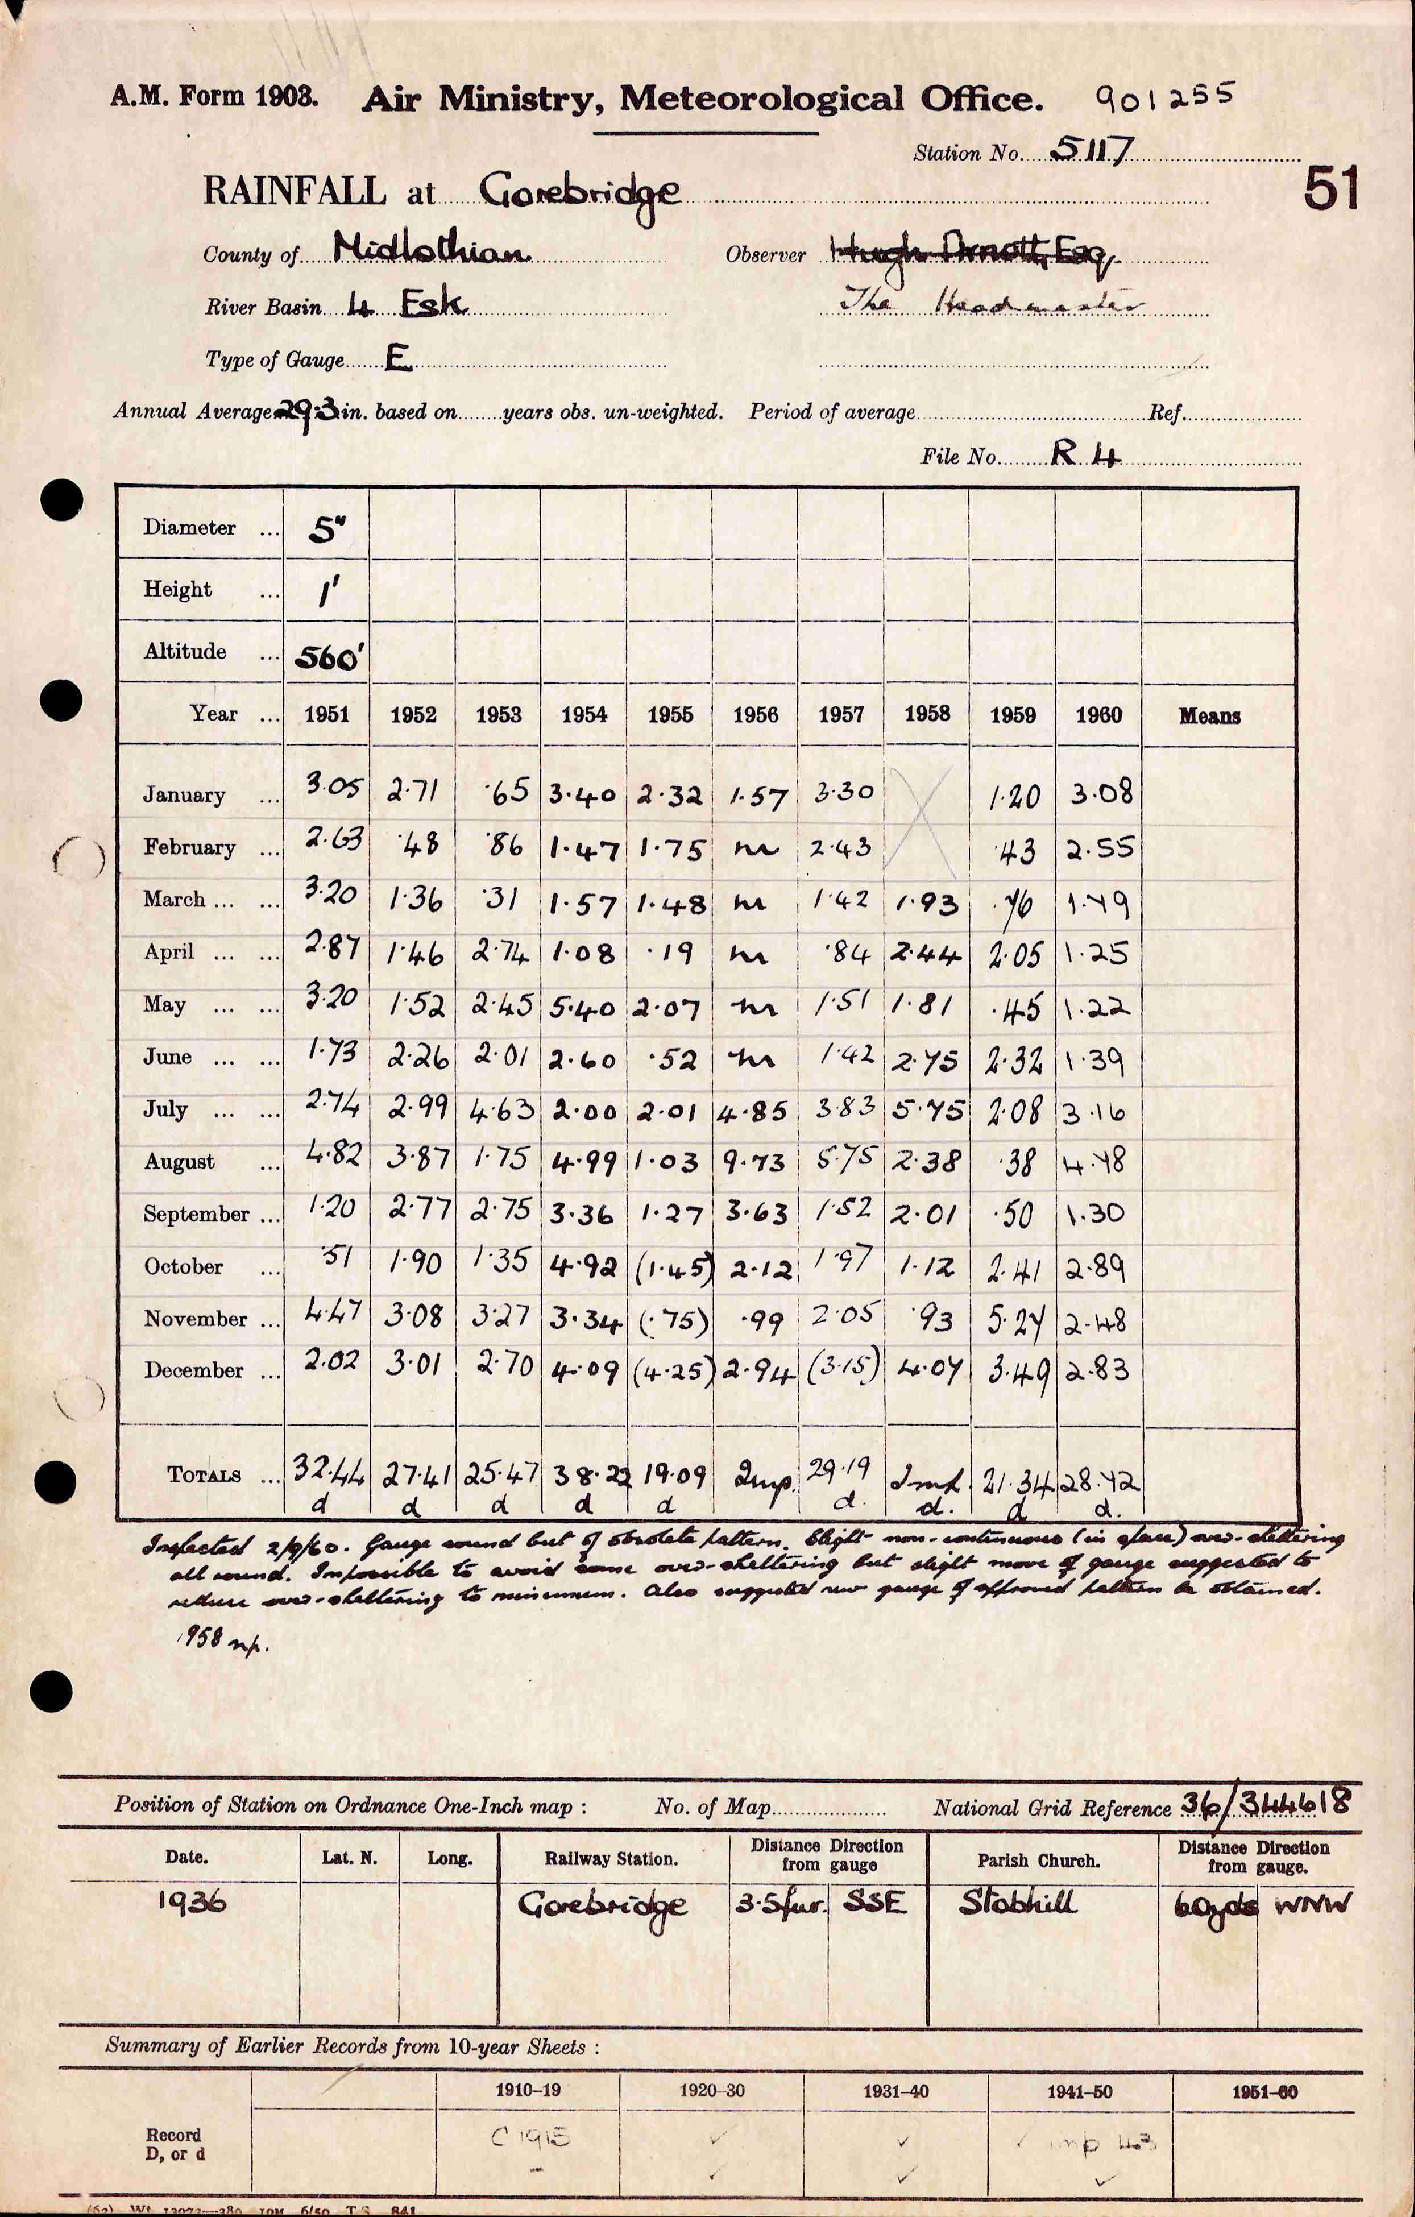 A.M. Form 1903. Air Ministry, Meteorological Office. 901255
Station No. 5117
51
RAINFALL at Gorebridge
County of Midlothian Observer Hugh Arnott, Esq.
River Basin 4 Esk The Headmaster
Type of Gauge E
Annual Average 29.3 in. based on years obs. un-weighted. Period of average Ref.
File No. R 4
Diameter ... 5"
Height ... 1'
Altitude ... 560'
Year ... 1951 1952 1953 1954 1955 1956 1957 1958 1959 1960 Means
January ... 3.05 2.71 .65 3.40 2.32 1.57 3.30 1.20 3.08
February ... 2.63 .48 .86 1.47 1.75 m 2.43 .43 2.55
March ... ... 3.20 1.36 .31 1.57 1.48 m 1.42 1.93 .76 1.79
April ... ... 2.87 1.46 2.74 1.08 .19 m .84 2.44 2.05 1.25
May ... ... 3.20 1.52 2.45 5.40 2.07 m 1.51 1.81 .45 1.22
June ... ... 1.73 2.26 2.01 2.60 .52 m 1.42 2.75 2.32 1.39
July ... ... 2.74 2.99 4.63 2.00 2.01 4.85 3.83 5.75 2.08 3.16
August ... 4.82 3.87 1.75 4.99 1.03 9.73 5.75 2.38 .38 4.78
September ... 1.20 2.77 2.75 3.36 1.27 3.63 1.52 2.01 .50 1.30
October ... .51 1.90 1.35 4.92 (1.45) 2.12 1.97 1.12 2.41 2.89
November ... 4.47 3.08 3.27 3.34 (.75) .99 2.05 .93 5.27 2.48
December ... 2.02 3.01 2.70 4.09 (4.25) 2.94 (3.15) 4.07 3.49 2.83
TOTALS ... 32.44 27.41 25.47 38.22 19.09 Imp. 29.19 Imp. 21.34 28.72
d d d d d d. d. d d.
Inspected 2/9/60. Gauge sound but of obsolete pattern. Slight non-continuous (in space) over-sheltering
all round. Impossible to avoid some over-sheltering but slight move of gauge suggested to
reduce over-sheltering to minimum. Also suggested new gauge of approved pattern be obtained.
1958 np.
Position of Station on Ordnance One-Inch map : No. of Map National Grid Reference 36/344618
Date. Lat. N. Long. Railway Station. Distance Direction from gauge Parish Church. Distance Direction from gauge.
1936 Gorebridge 3.5fur. SSE Stobhill 60yds WNW
Summary of Earlier Records from 10-year Sheets :
1910-19 1920-30 1931-40 1941-50 1951-60
Record C 1915 ✓ ✓ ✓ imp 43
D, or d - ✓ ✓ ✓